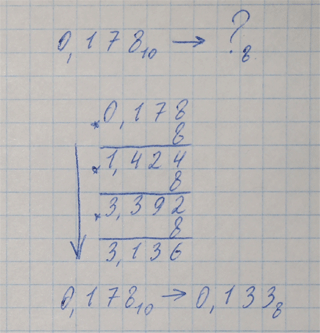 0,178₁₀ → ?₈
*0,178
8
*1,424
8
*3,392
8
3,136
0,178₁₀ → 0,133₈